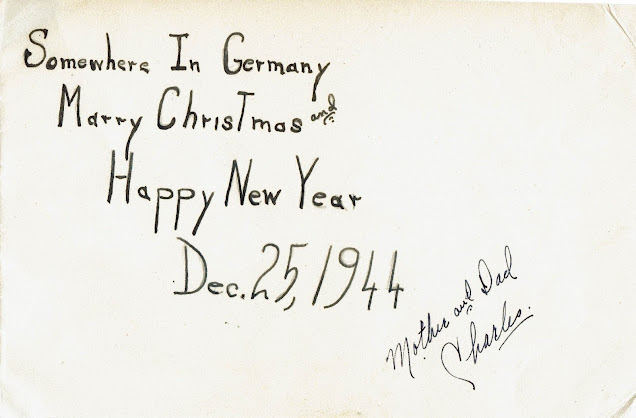 Somewhere In Germany
Marry Christmas and
Happy New Year
Dec. 25, 1944
Mother and Dad
Charles.